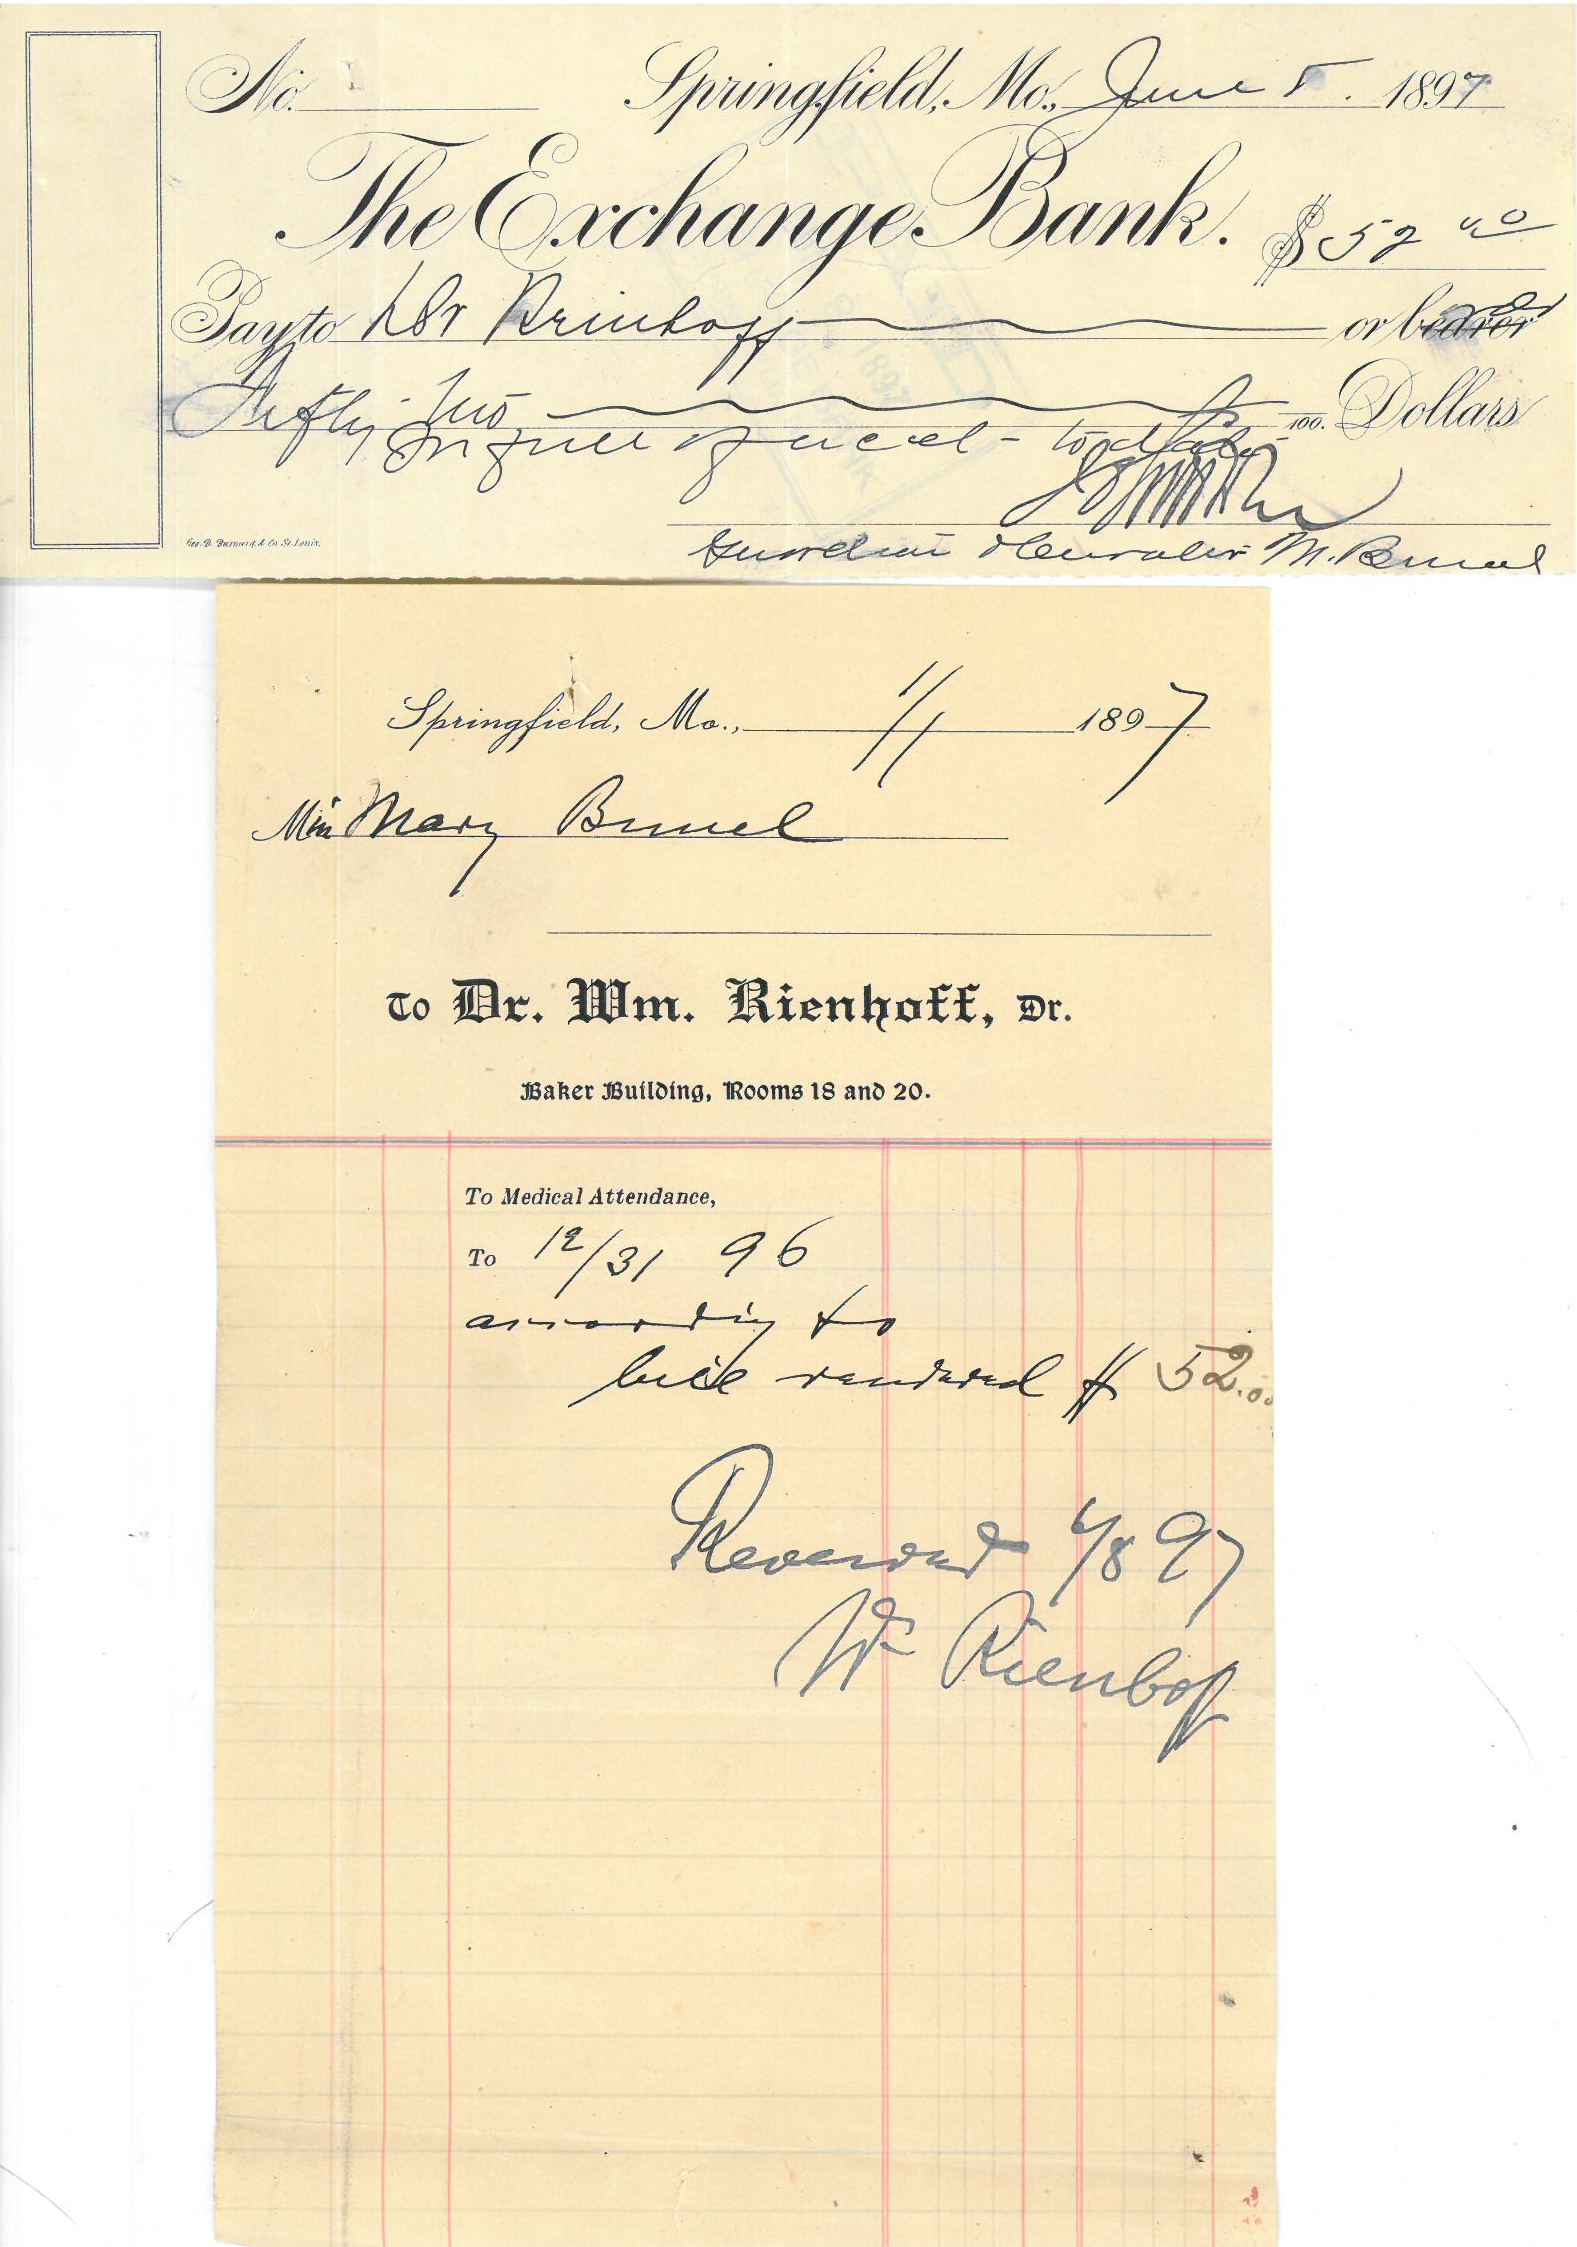 No. Springfield, Mo., June 5. 1897
The Exchange Bank. $52 00
Pay to Dr Reinhoff or bearer order
Fifty two 100. Dollars
In full of acct - to date
Geo. D. Barnard & Co. St. Louis.
Guardian M. Bunel
Springfield, Mo., 1/1 1897
Miss Mary Bunel
To Dr. Wm. Rienhoff, Dr.
Baker Building, Rooms 18 and 20.
To Medical Attendance,
To 12/31 96
according to
bill rendered $ 52.00
Received 6/8 97
Wm Rienhoff